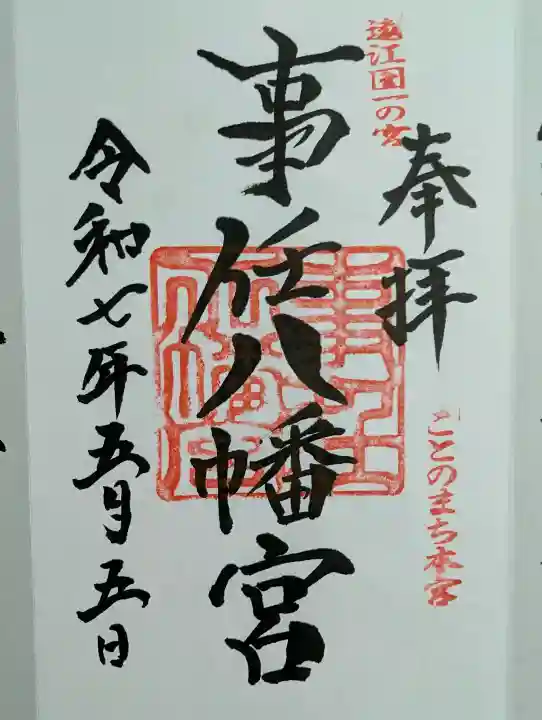 遠江国一の宮
奉拝
ことのまち本宮
事任八幡宮
令和七年五月五日